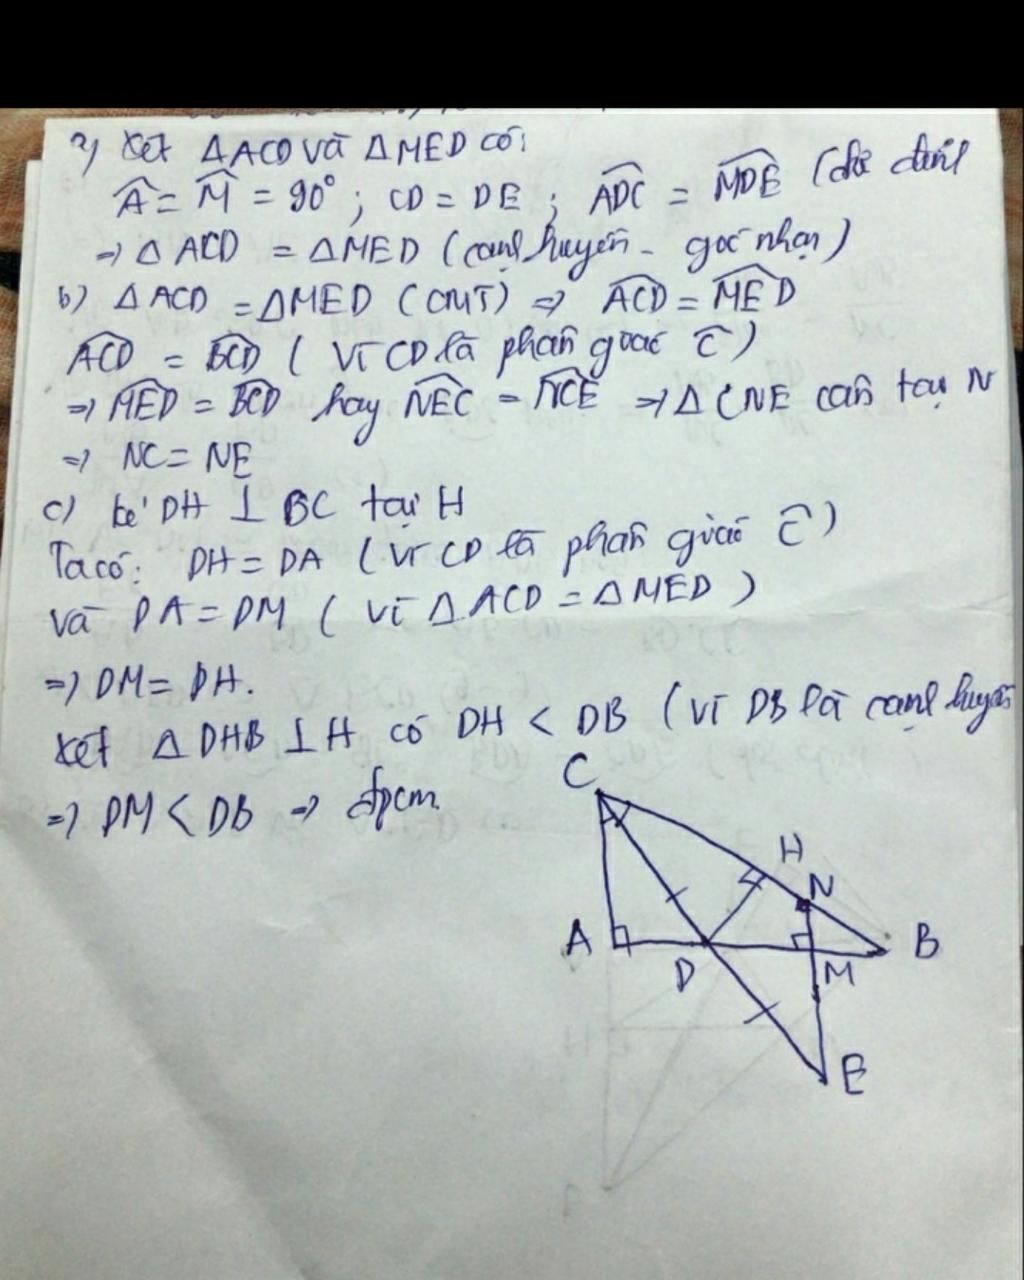 a) Xét ΔACD và ΔMED có:
Â = M̂ = 90° ; CD = DE ; ADC^ = MDE^ (đối đỉnh
=> ΔACD = ΔMED (cạnh huyền - góc nhọn)
b) ΔACD = ΔMED (CMT) => ACD^ = MED^
ACD^ = BCD^ (Vì CD là phân giác Ĉ)
=> MED^ = BCD^ hay NEC^ = NCE^ => ΔCNE cân tại N
=> NC = NE
c) kẻ DH ⊥ BC tại H
Ta có: DH = DA (vì CD là phân giác Ĉ)
và DA = DM (vì ΔACD = ΔMED)
=> DM = DH.
Xét ΔDHB ⊥ H có DH < DB (vì DB là cạnh huyền
=> DM < DB => đpcm
C
H
N
A
B
D
M
E